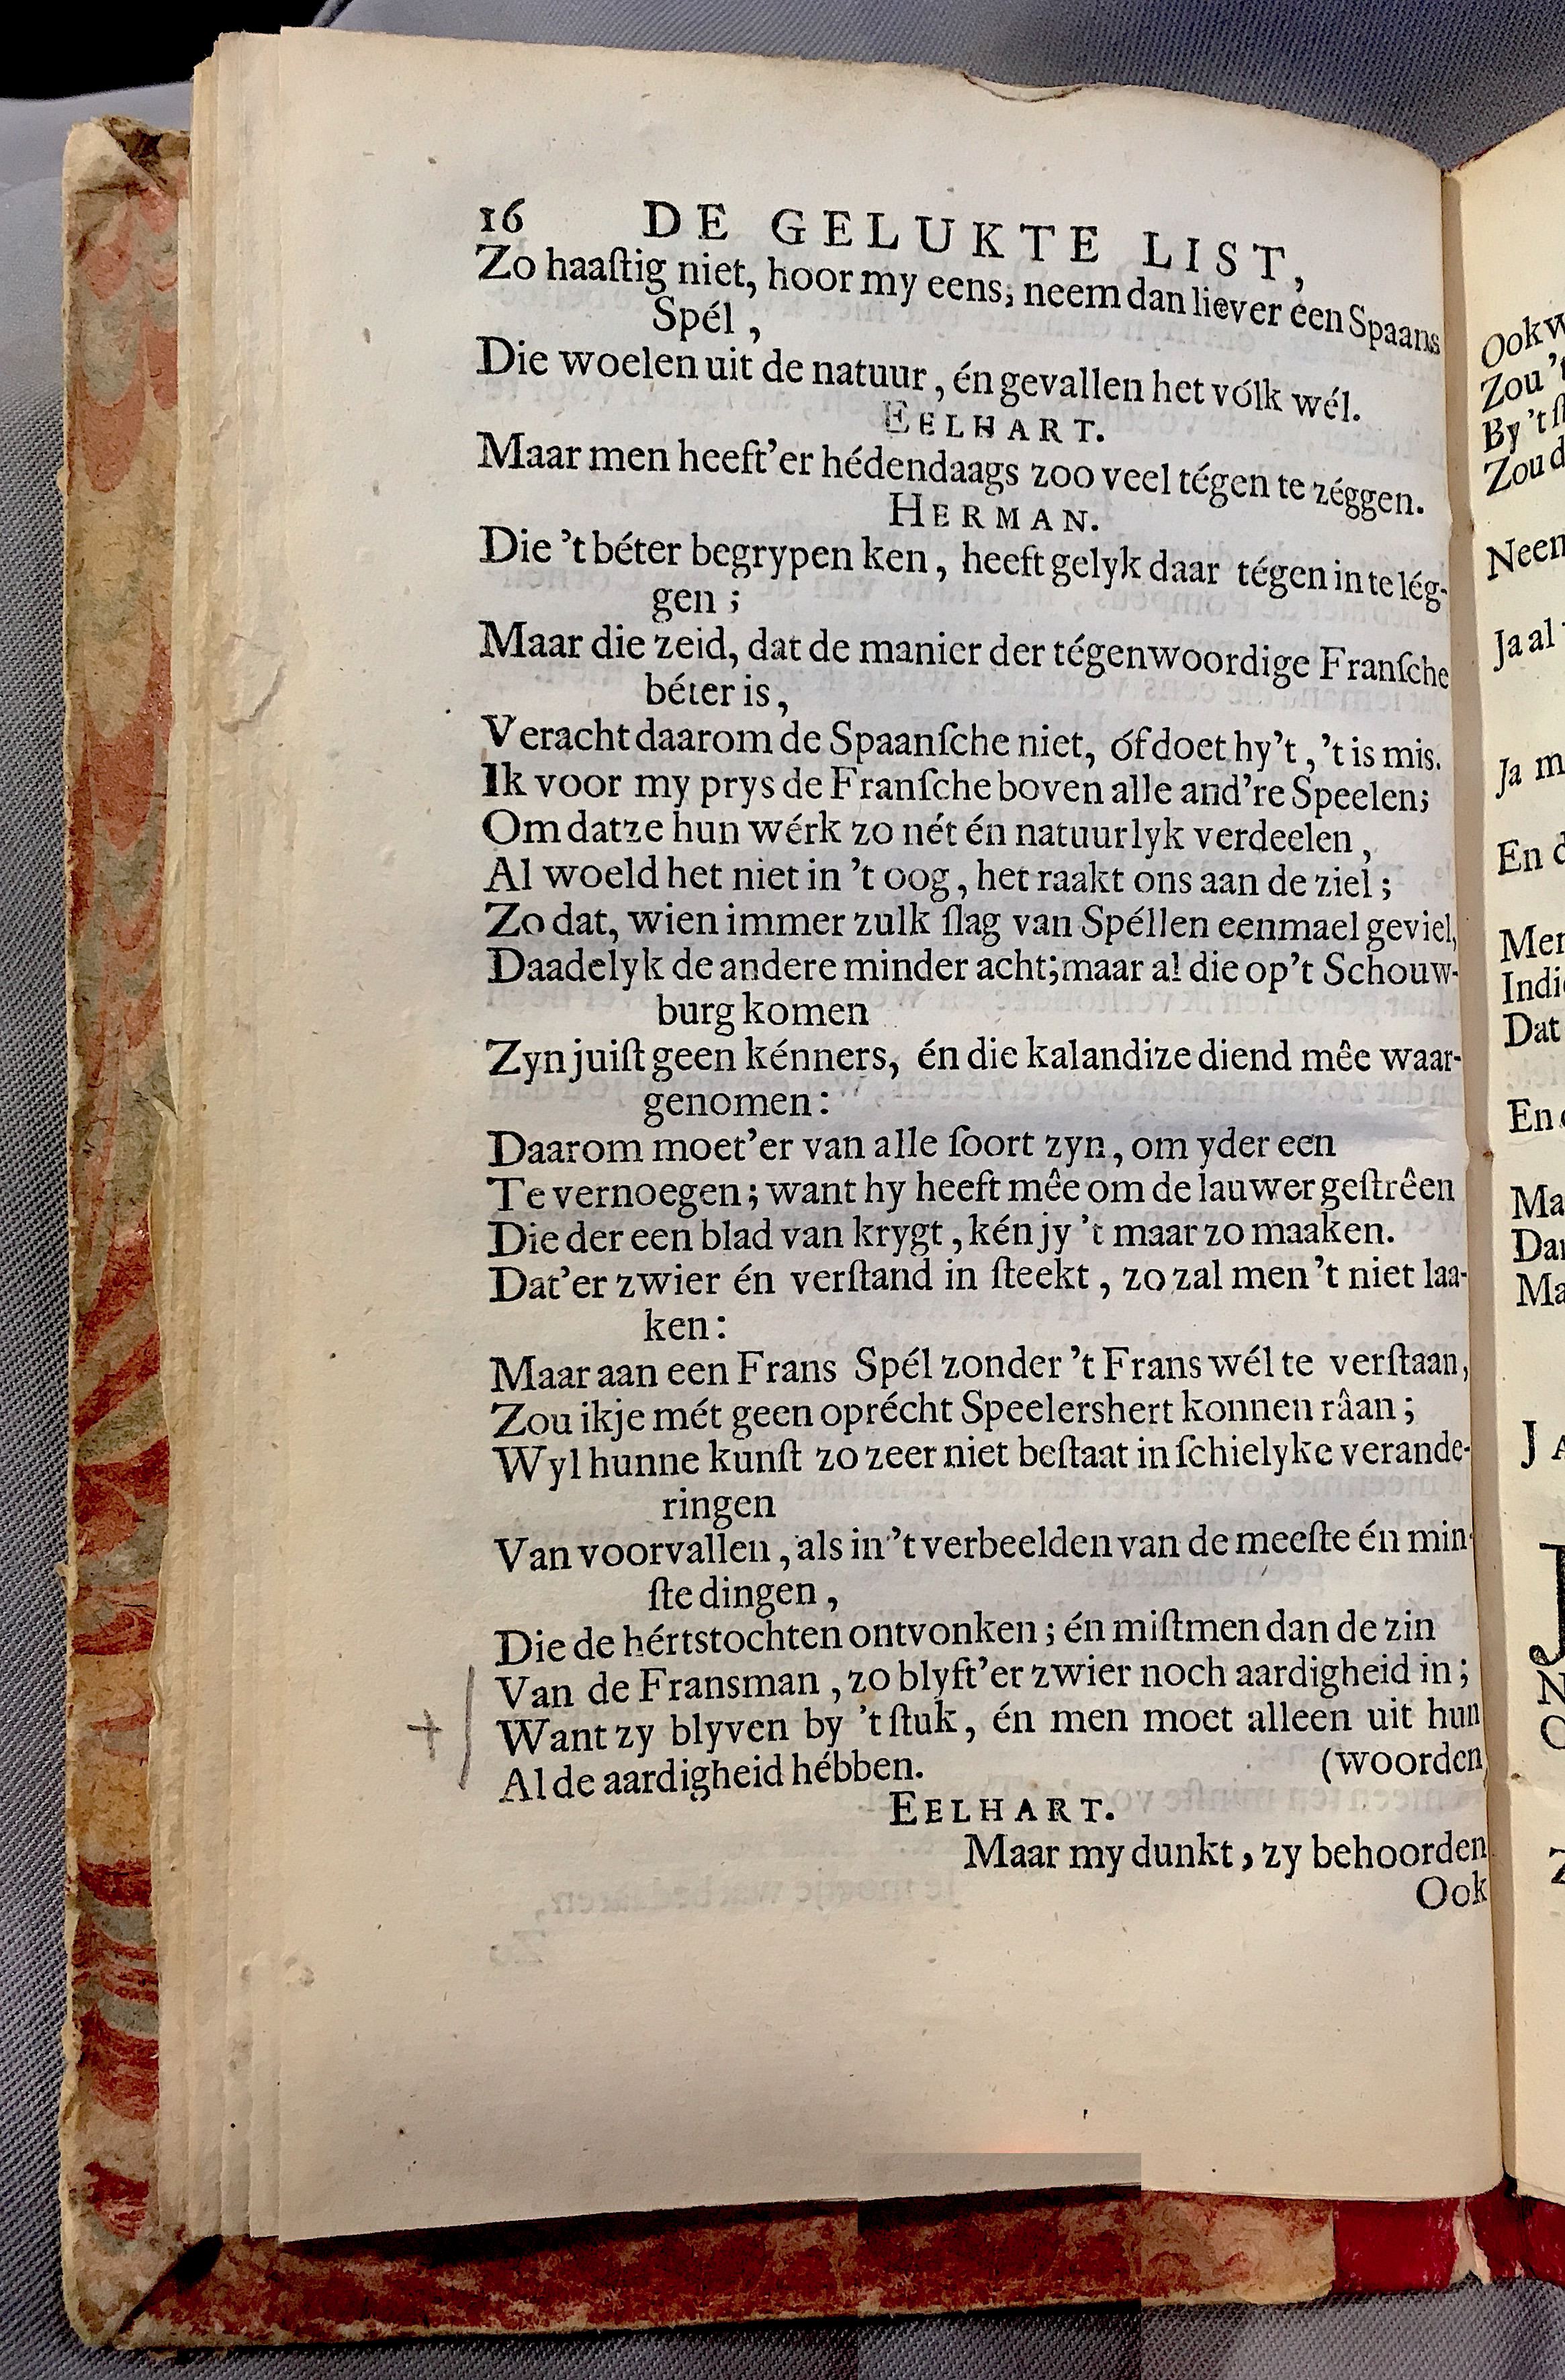 16 DE GELUKTE LIST,
Zo haaſtig niet, hoor my eens, neem dan liever een Spaans
Spél,
Die woelen uit de natuur, én gevallen het vólk wél.
EELHART.
Maar men heeft'er hédendaags zoo veel tégen te zéggen.
HERMAN.
Die 't béter begrypen ken, heeft gelyk daar tégen in te lég-
gen;
Maar die zeid, dat de manier der tégenwoordige Franſche
béter is,
Veracht daarom de Spaanſche niet, óf doet hy't, 't is mis.
Ik voor my prys de Franſche boven alle and're Speelen;
Om datze hun wérk zo nét én natuurlyk verdeelen,
Al woeld het niet in 't oog, het raakt ons aan de ziel;
Zo dat, wien immer zulk ſlag van Spéllen eenmael geviel,
Daadelyk de andere minder acht; maar al die op't Schouw-
burg komen
Zyn juiſt geen kénners, én die kalandize diend mêe waar-
genomen:
Daarom moet'er van alle ſoort zyn, om yder een
Te vernoegen; want hy heeft mêe om de lauwer geſtrêen
Die der een blad van krygt, kén jy 't maar zo maaken.
Dat'er zwier én verſtand in ſteekt, zo zal men 't niet laa-
ken:
Maar aan een Frans Spél zonder 't Frans wél te verſtaan,
Zou ik je mét geen oprécht Speelershert konnen râan;
Wyl hunne kunſt zo zeer niet beſtaat in ſchielyke verande-
ringen
Van voorvallen, als in 't verbeelden van de meeſte én min-
ſte dingen,
Die de hértstochten ontvonken; én miſt men dan de zin
Van de Fransman, zo blyft'er zwier noch aardigheid in;
Want zy blyven by 't ſtuk, én men moet alleen uit hun
Al de aardigheid hébben. (woorden
EELHART.
Maar my dunkt, zy behoorden
Ook
Ook
Zou 't
By 't
Zou d
Neen
Ja al
Ja m
En d
Men
Indi
Dat
En
Ma
Dan
Ma
J A
J
N